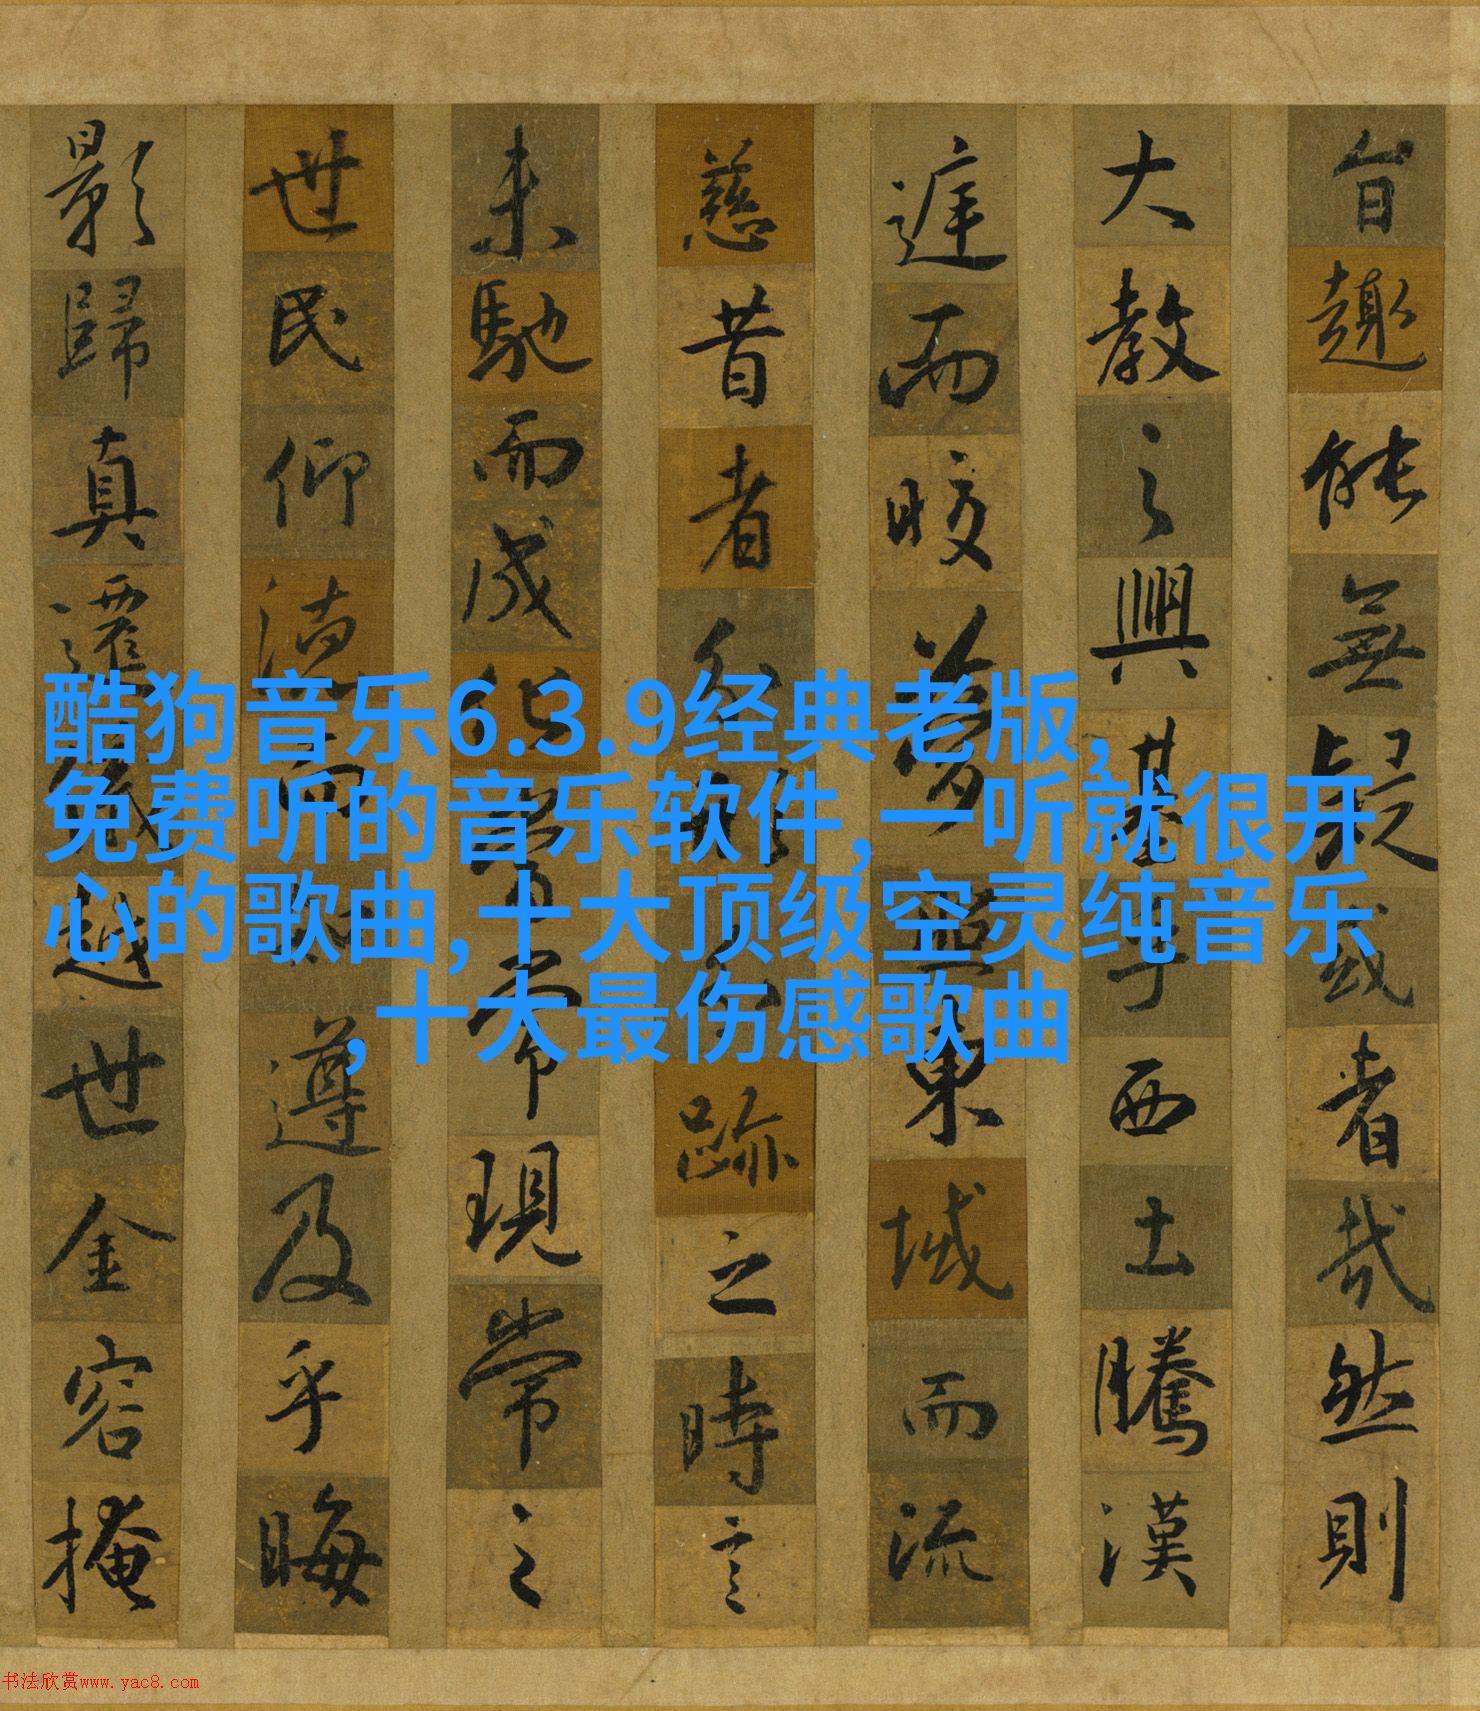 旨趣能無疑或者哉然則
大教之興基乎西土騰漢
庭而皎夢照東域而流
慈昔者分形分跡之時言
未馳而成化當常現常之
世民仰德而知遵及乎晦
影歸真遷儀越世金容掩
酷狗音乐6.3.9经典老版,
免费听的音乐软件,一听就很开
心的歌曲,十大顶级空灵纯音乐
,十大最伤感歌曲
书法欣赏www.yac8.com